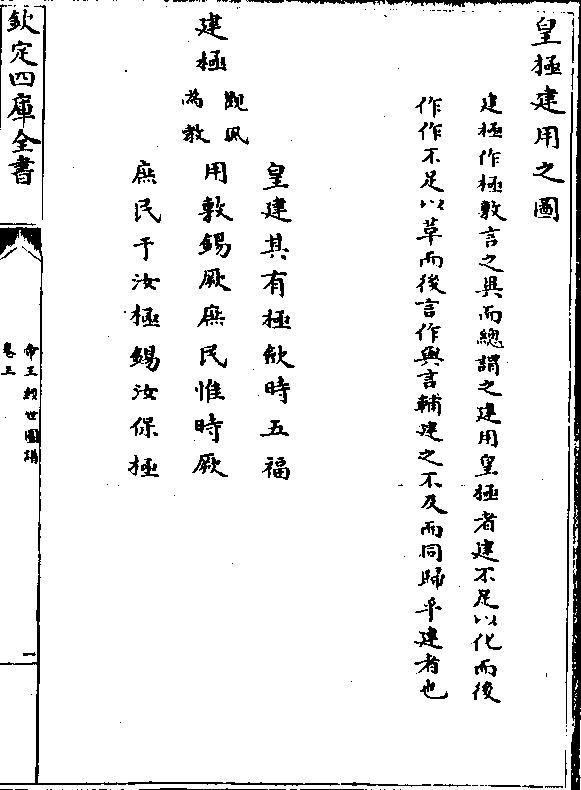 皇極建用之圖
建極作極敷言之異而總謂之建用皇極者建不足以化而後
作作不足以草而後言作與言輔建之不及而同歸乎建者也
皇建其有極歛時五福
建極
觀風
為教
用敷錫厥庶民惟時厥
庶民于汝極錫汝保極
欽定四庫全書
帝王經世圖譜
卷三
一